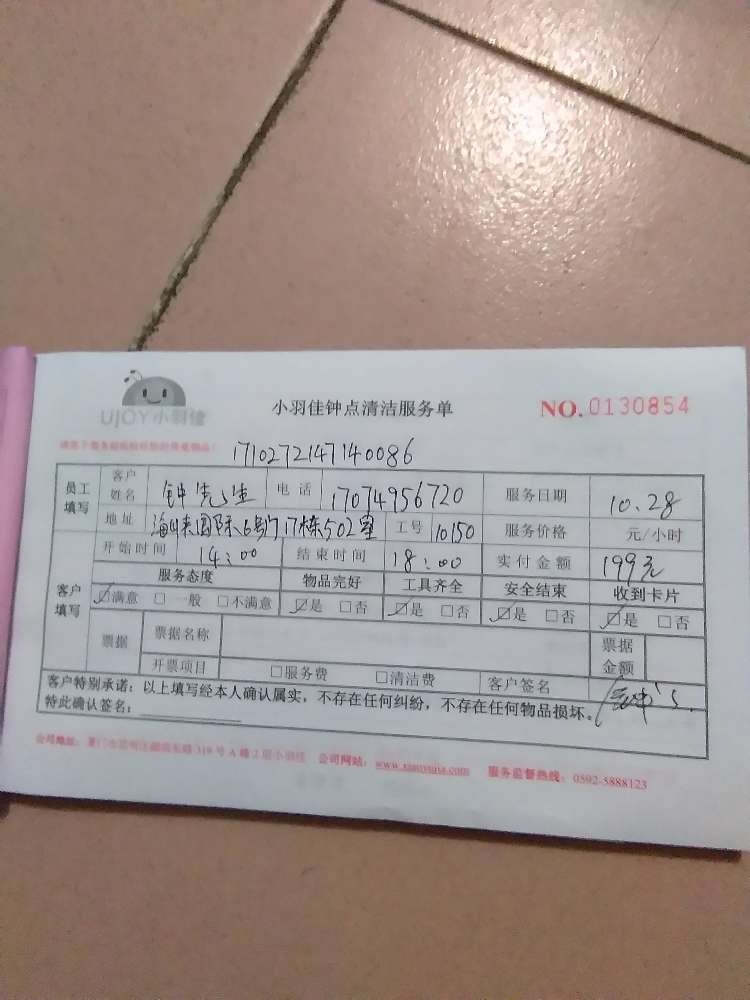 UJOY小羽佳
小羽佳钟点清洁服务单
NO.0130854
1710272147140086
员工填写 客户姓名 钟先生 电话 17074956720 服务日期 10.28
地址 国际6号门17栋502室 工号 10150 服务价格 元/小时
客户填写 开始时间 14:00 结束时间 18:00 实付金额 199元
服务态度 物品完好 工具齐全 安全结束 收到卡片
☑满意 □一般 □不满意 ☑是 □否 ☑是 □否 ☑是 □否 ☑是 □否
票据 票据名称 票据金额
开票项目 □服务费 □清洁费 客户签名
客户特别承诺：以上填写经本人确认属实，不存在任何纠纷，不存在任何物品损坏。
特此确认签名：
公司地址： 319号A幢2层小羽佳 公司网站： 服务监督热线：0592-5888123